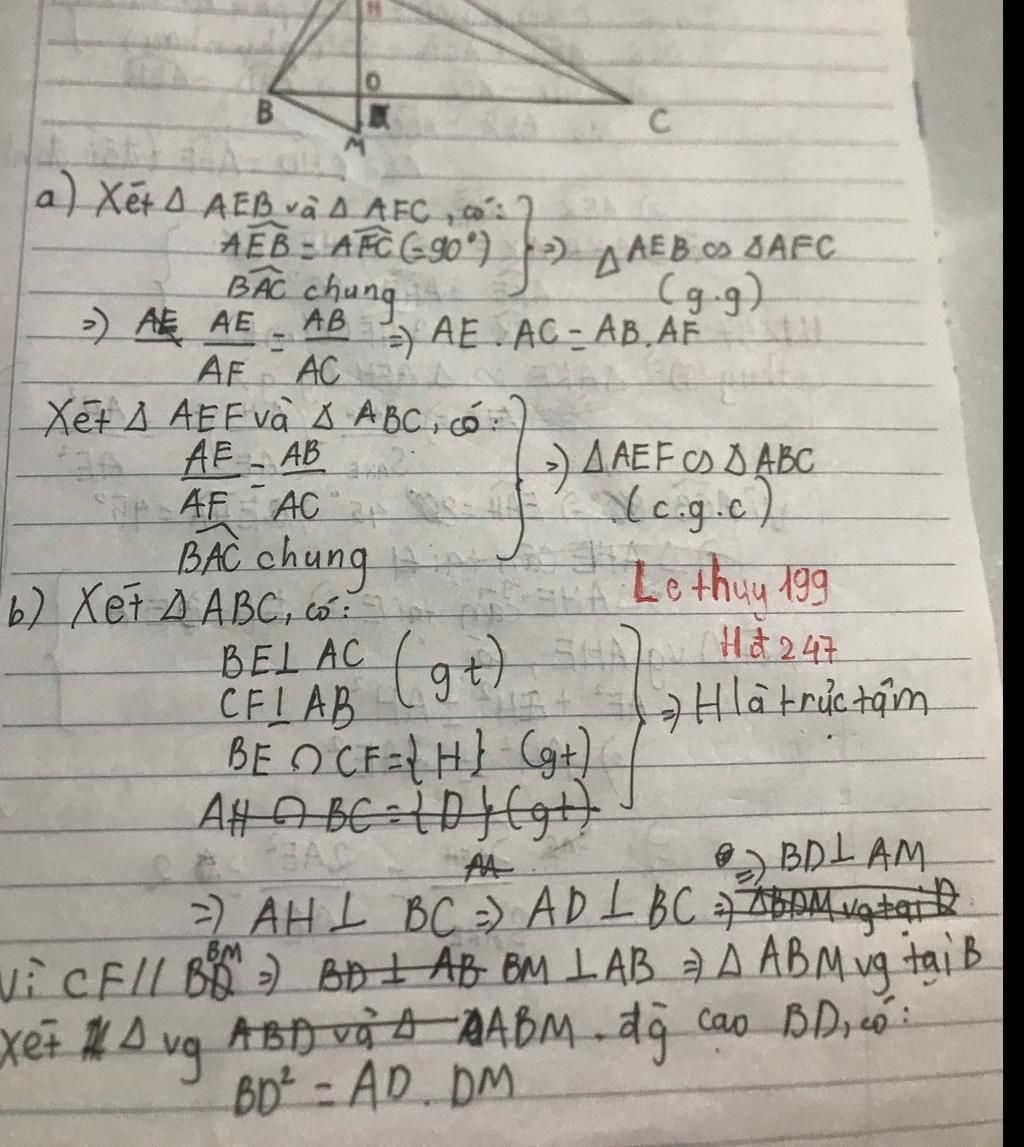 H
D
B
C
M
a) Xét Δ AEB và Δ AFC, có:
AEB̂ = AFĈ (=90°)
BAĈ chung
=> Δ AEB ∽ Δ AFC
(g.g)
=> AE AE/AF = AB/AC => AE . AC = AB . AF
Xét Δ AEF và Δ ABC, có:
AE/AF = AB/AC
BAĈ chung
=> Δ AEF ∽ Δ ABC
(c.g.c)
Lethuy 199
Hđ 247
b) Xét Δ ABC, có:
BE ⊥ AC (gt)
CF ⊥ AB
BE ∩ CF = {H} (gt)
=> H là trực tâm
AH ∩ BC = {D} (gt)
=> BD ⊥ AM
=> AH ⊥ BC => AD ⊥ BC => ΔBDM vg tại D
Vì CF // BM => BD ⊥ AB BM ⊥ AB => Δ ABM vg tại B
Xét Δ vg ABD và Δ ABM . đg cao BD, có:
BD² = AD . DM